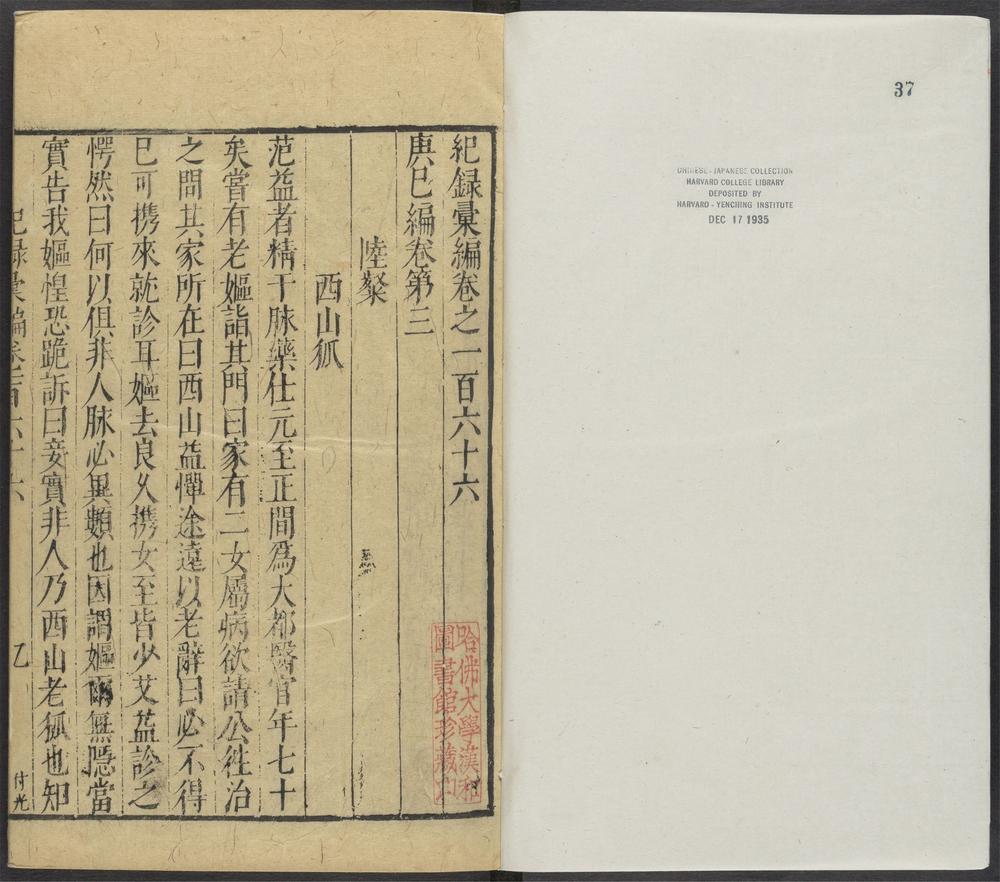 37
CHINESE-JAPANESE COLLECTION
HARVARD COLLEGE LIBRARY
DEPOSITED BY
HARVARD-YENCHING INSTITUTE
DEC 17 1935
紀録彙編卷之一百六十六
庚巳編卷第三
陸粲
西山狐
范益者精于脉藥仕元至正間爲大都醫官年七十
矣嘗有老嫗詣其門曰家有二女屬病欲請公徃治
之問其家所在曰西山益憚途遠以老辭曰必不得
已可携來就診耳嫗去良久携女至皆少艾益診之
愕然曰何以俱非人脉必異類也因謂嫗爾無隱當
實告我嫗惶恐跪訴曰妾實非人乃西山老狐也知
哈佛大學漢和
圖書館珍藏印
紀録彙編卷一百六十六
乙
付光